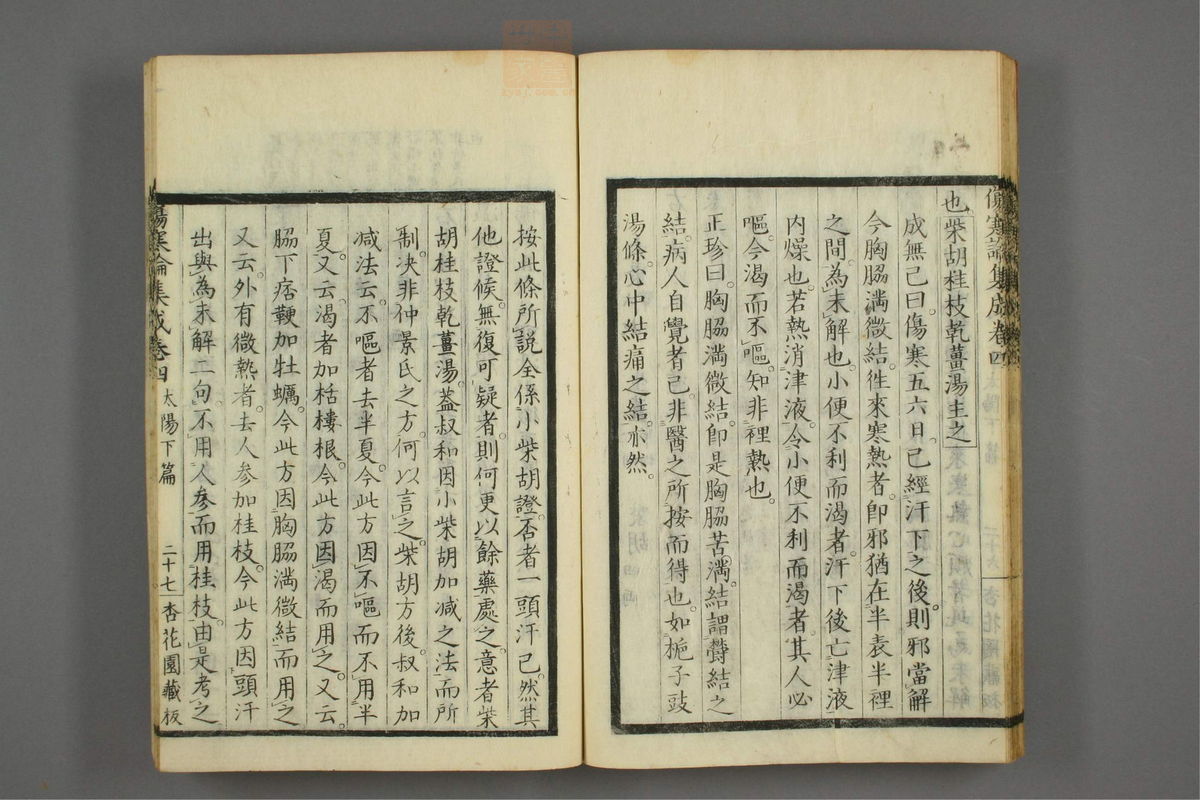 傷寒論集成卷四
也柴胡桂枝乾薑湯主之
成無己曰傷寒五六日已經汗下之後則邪當解
今胸脇滿微結徃來寒熱者卽邪猶在半表半裡
之間爲未解也小便不利而渴者汗下後亡津液
內燥也若熱消津液令小便不利而渴者其人必
嘔今渴而不嘔知非裡熱也
正珍曰胸脇滿微結卽是胸脇苦滿結謂鬱結之
結病人自覺者已非醫之所按而得也如梔子豉
湯條心中結痛之結亦然
按此條所說全係小柴胡證否者一頭汗已然其
他證候無復可疑者則何更以餘藥處之意者柴
胡桂枝乾薑湯蓋叔和因小柴胡加減之法而所
制决非仲景氏之方何以言之柴胡方後叔和加
减法云不嘔者去半夏今此方因不嘔而不用半
夏又云渴者加栝樓根今此方因渴而用之又云
脇下痞鞕加牡蠣今此方因胸脇滿微結而用之
又云外有微熱者去人參加桂枝今此方因頭汗
出與爲未解二句不用人參而用桂枝由是考之
傷寒論集成卷四 太陽下篇 二十七 杏花園藏板